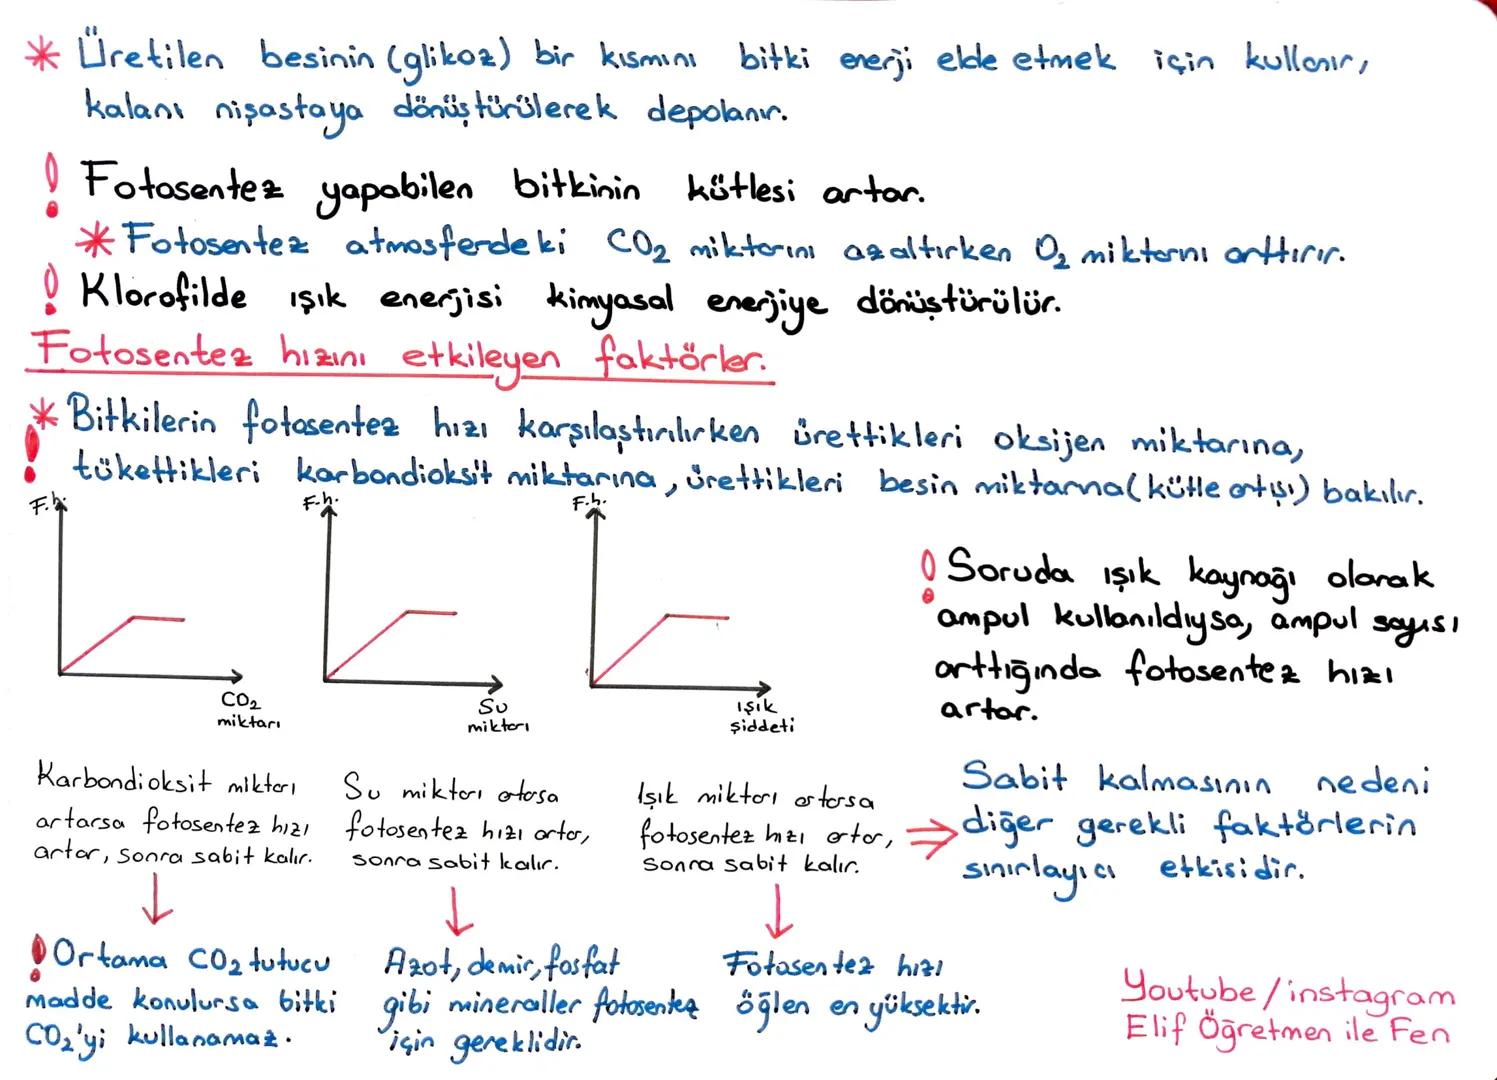 * Üretilen besinin (glikoz) bir kısmını bitki enerji elde etmek için kullanır,
kalanı nişastaya dönüştürülerek depolanır.
! Fotosentez yapabilen bitkinin kütlesi artar.
* Fotosentez atmosferdeki CO₂ miktarını azaltırken O₂ miktarnı arttırır.
! Klorofilde ışık enerjisi kimyasal enerjiye dönüştürülür.
Fotosentez hızını etkileyen faktörler.
* Bitkilerin fotosentez hızı karşılaştırılırken ürettikleri oksijen miktarına,
! tükettikleri karbondioksit miktarına, ürettikleri besin miktarına (kütle artışı) bakılır.
F.h.
CO₂
miktarı
F.h.
Su
miktarı
F.h.
ışık
şiddeti
! Soruda ışık kaynağı olarak
ampul kullanıldıysa, ampul sayısı
arttığında fotosentez hızı
artar.
Karbondioksit miktarı
artarsa fotosentez hızı
artar, sonra sabit kalır.
Su miktarı artarsa
fotosentez hızı artar,
sonra sabit kalır.
Işık miktarı artarsa
fotosentez hızı artar,
sonra sabit kalır.
⇒ Sabit kalmasının nedeni
diğer gerekli faktörlerin
sınırlayıcı etkisidir.
! Ortama CO₂ tutucu
madde konulursa bitki
CO₂'yi kullanamaz.
Azot, demir, fosfat
gibi mineraller fotosentez
için gereklidir.
Fotosentez hızı
öğlen en yüksektir.
Youtube / instagram
Elif Öğretmen ile Fen